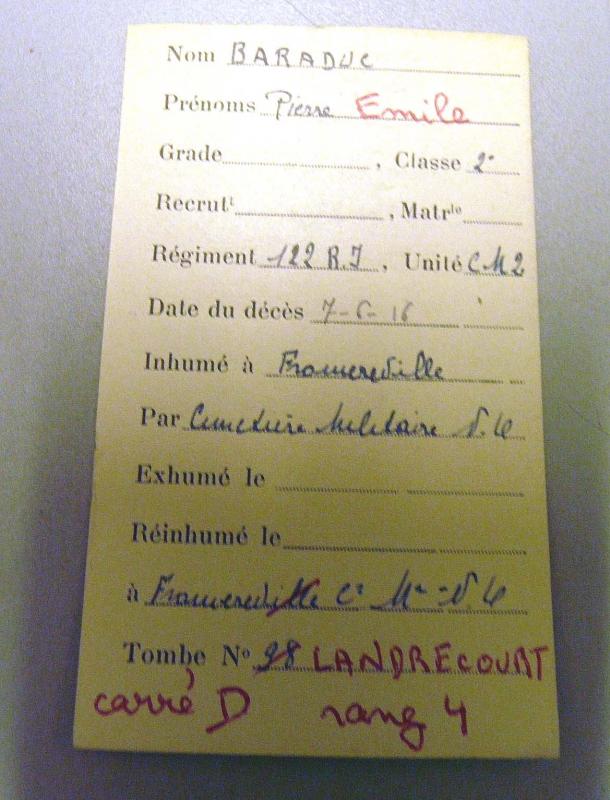 Nom BARADUC
Prénoms Pierre Emile
Grade , Classe 2e
Recrutt , Matrle
Régiment 122 R.I , Unité CM2
Date du décès 7-6-16
Inhumé à Fromereville
Par Cimetière Militaire N.4
Exhumé le
Réinhumé le
à Fromereville Ce Mre N.4
Tombe No 98 LANDRECOURT
carré D rang 4